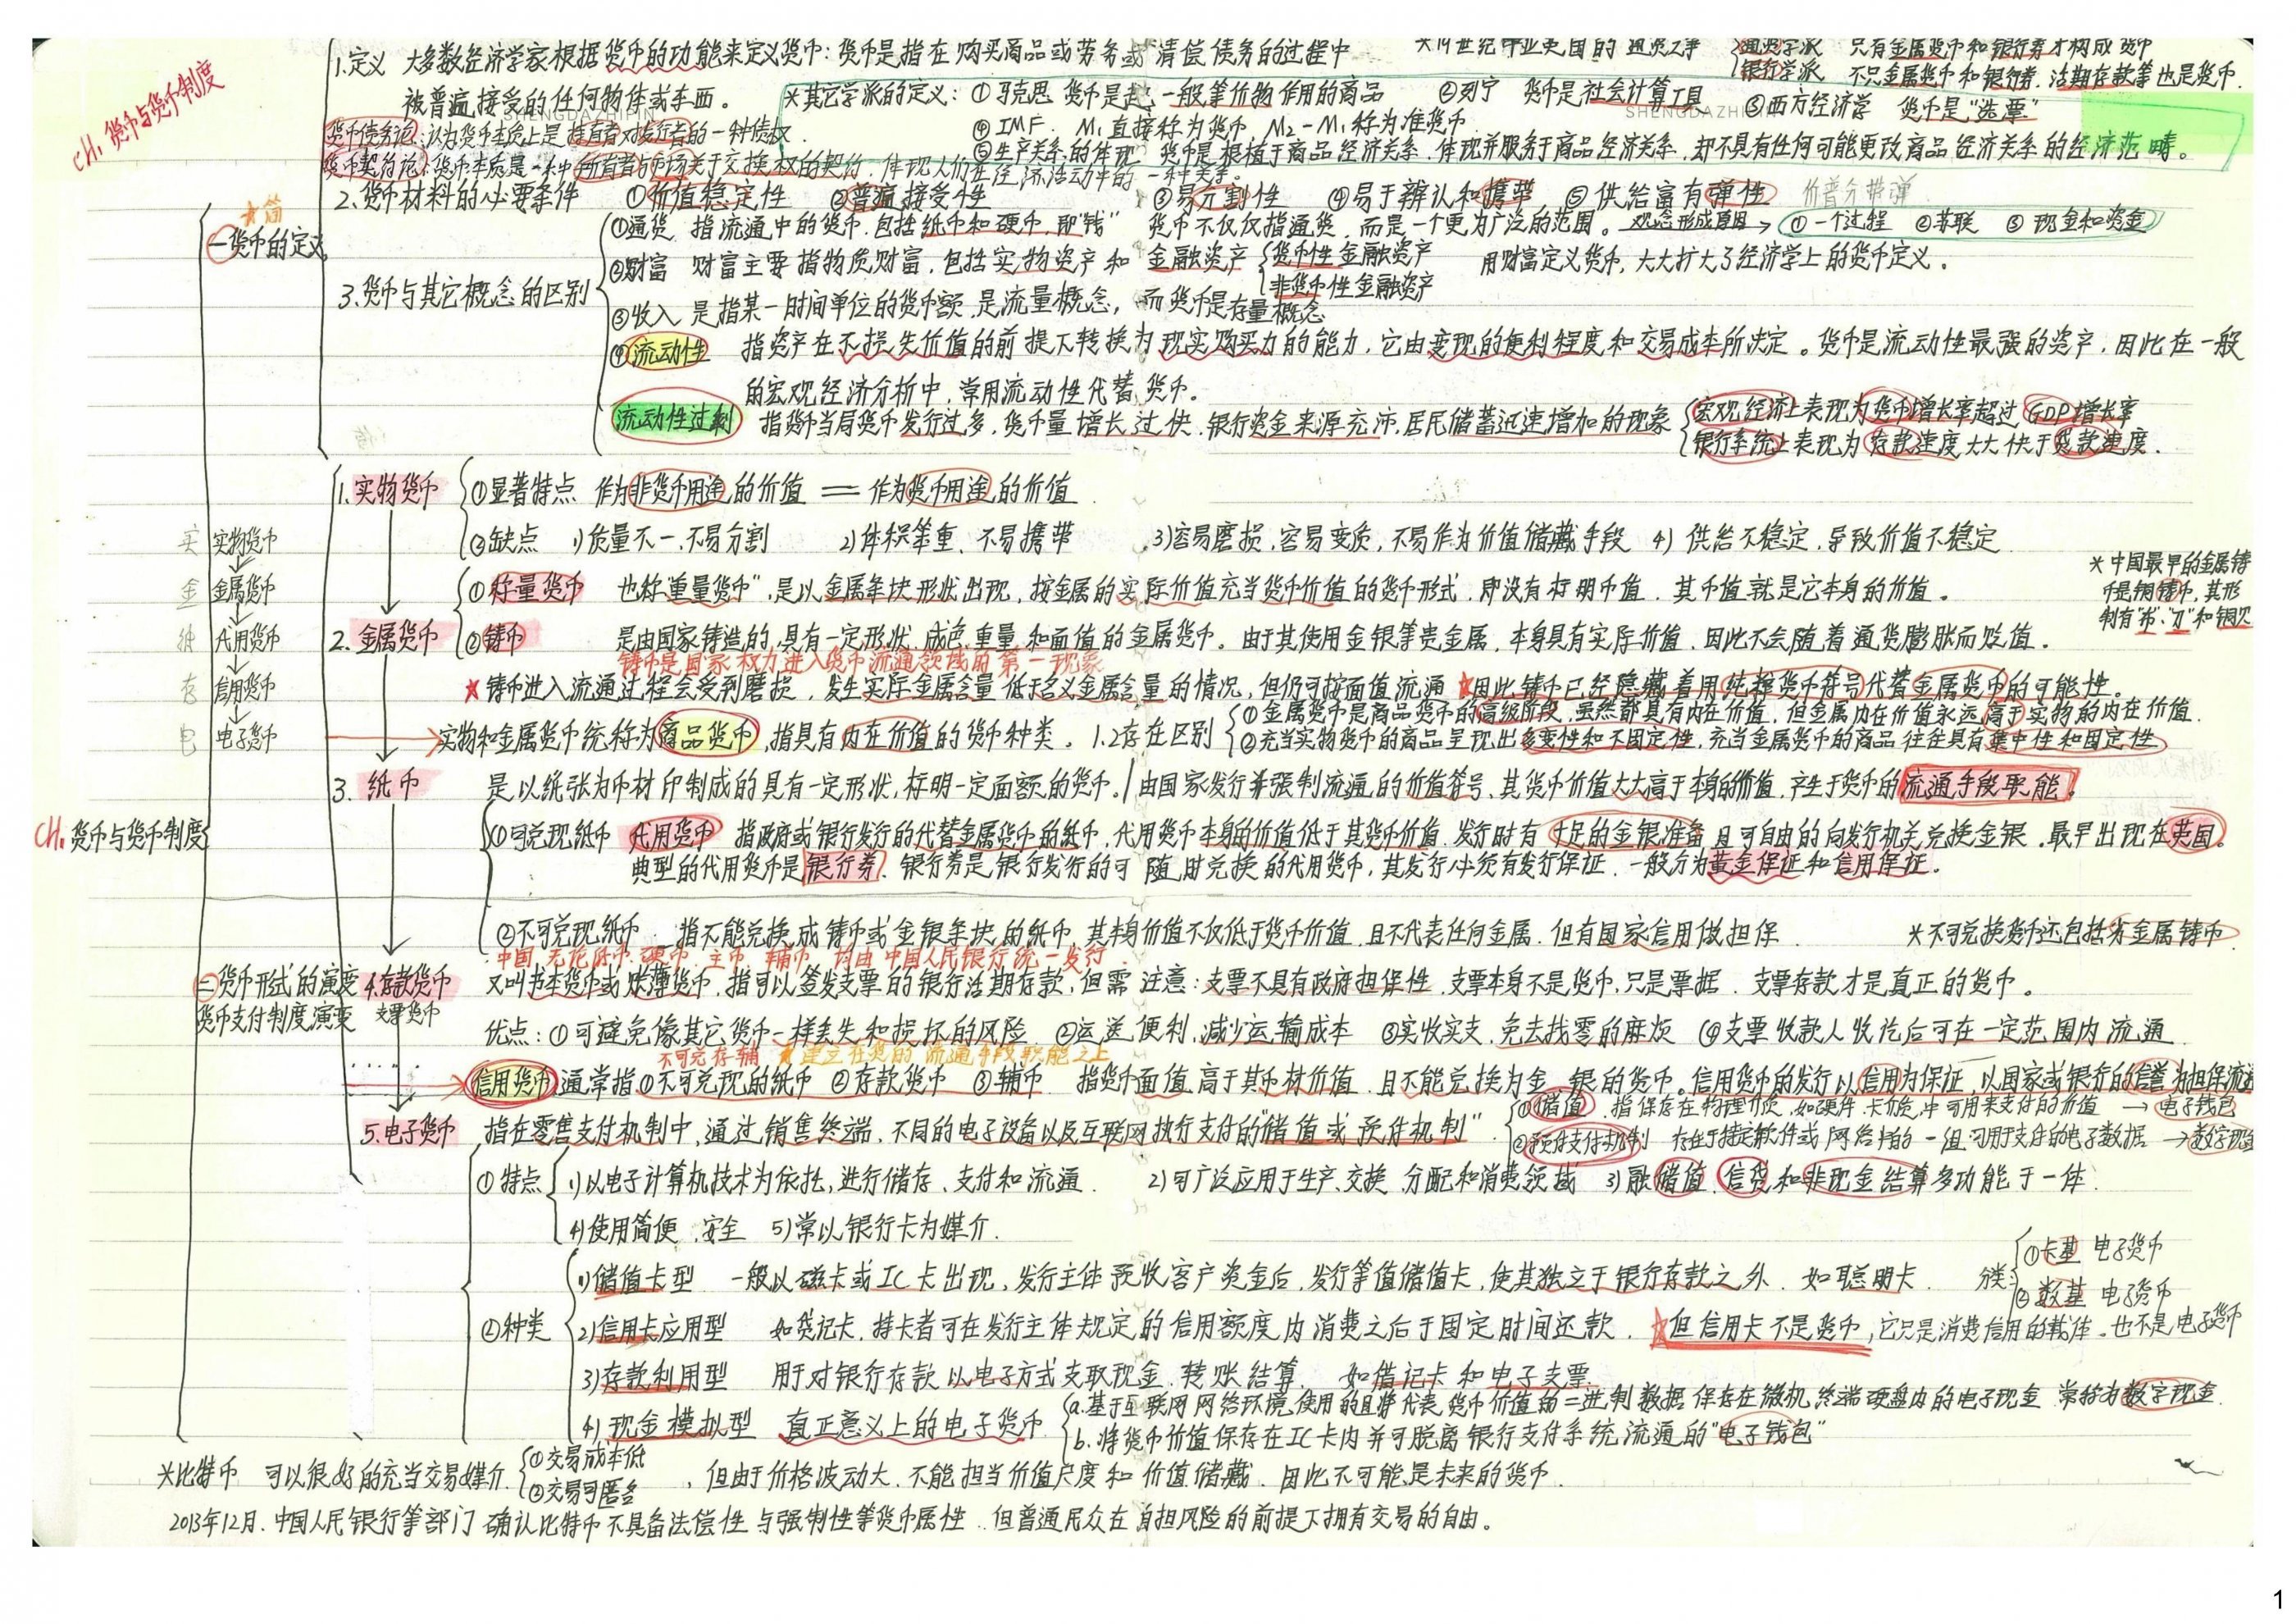 CH1 货币与货币制度
1.定义 大多数经济学家根据货币的功能来定义货币：货币是指在购买商品或劳务或清偿债务的过程中
*19世纪中业英国的通货之争 { 通货学派 只有金属货币和银行券才构成货币
银行学派 不只金属货币和银行券，活期存款等也是货币.
被普遍接受的任何物体或东西。 *其它学派的定义：①马克思 货币是起一般等价物作用的商品 ②列宁 货币是社会计算工具 ③西方经济学 货币是"选票"
SHENGDAZHIPIN SHENGDAZHIPIN
货币债务论：认为货币本质上是持有者对发行者的一种债权. ④IMF. M₁直接称为货币，M₂-M₁称为准货币
⑤生产关系的体现 货币是根植于商品经济关系，体现并服务于商品经济关系，却不具有任何可能更改商品经济关系的经济范畴。
货币契约论：货币本质是一种所有者与市场关于交换权的契约，体现人们在经济活动中的一种关系。
2.货币材料的必要条件 ①价值稳定性 ②普遍接受性 ③易分割性 ④易于辨认和携带 ⑤供给富有弹性 价普分带弹
★简
一货币的定义
3.货币与其它概念的区别
①通货 指流通中的货币，包括纸币和硬币，即"钱" 货币不仅仅指通货，而是一个更为广泛的范围。 观念形成原因→①一个过程 ②苏联 ③现金和资金
②财富 财富主要指物质财富，包括实物资产和金融资产 { 货币性金融资产 用财富定义货币，大大扩大了经济学上的货币定义。
非货币性金融资产
③收入 是指某一时间单位的货币额，是流量概念，而货币是存量概念
④流动性 指资产在不损失价值的前提下转换为现实购买力的能力，它由变现的便利程度和交易成本所决定。货币是流动性最强的资产，因此在一般
的宏观经济分析中，常用流动性代替货币。
流动性过剩 指货币当局货币发行过多，货币量增长过快，银行资金来源充沛，居民储蓄迅速增加的现象 { 宏观经济上表现为货币增长率超过GDP增长率
银行系统上表现为存款速度大大快于贷款速度.
1.实物货币 ①显著特点 作为非货币用途的价值 = 作为货币用途的价值
②缺点 1)质量不一、不易分割 2)体积笨重、不易携带 3)容易磨损，容易变质，不易作为价值储藏手段 4)供给不稳定，导致价值不稳定
实 实物货币
金 金属货币
纸 代用货币
存 信用货币
电 电子货币
2.金属货币
①称量货币 也称"重量货币"，是以金属条块形状出现，按金属的实际价值充当货币价值的货币形式，即没有标明币值，其币值就是它本身的价值。
*中国最早的金属铸
币是铜铸币，其形
制有"布"、"刀"和铜贝
②铸币 是由国家铸造的，具有一定形状、成色、重量和面值的金属货币。由于其使用金银等贵金属，本身具有实际价值，因此不会随着通货膨胀而贬值.
铸币是国家权力进入货币流通领域的第一现象
★铸币进入流通过程会受到磨损，发生实际金属含量低于名义金属含量的情况，但仍可按面值流通 ★因此铸币已经隐藏着用纯粹货币符号代替金属货币的可能性。
实物和金属货币统称为商品货币，指具有内在价值的货币种类。1.2存在区别 { ①金属货币是商品货币的高级阶段，虽然都具有内在价值，但金属内在价值永远高于实物的内在价值.
②充当实物货币的商品呈现出多变性和不固定性，充当金属货币的商品往往具有集中性和固定性
3.纸币 是以纸张为币材印制成的具有一定形状，标明一定面额的货币。/由国家发行并强制流通的价值符号，其货币价值大大高于本身的价值，产生于货币的流通手段职能。
CH1 货币与货币制度
①可兑现纸币 代用货币 指政府或银行发行的代替金属货币的纸币，代用货币本身的价值低于其货币价值，发行时有十足的金银准备且可自由的向发行机关兑换金银。最早出现在英国。
典型的代用货币是银行券，银行券是银行发行的可随时兑换的代用货币，其发行必须有发行保证，一般分为黄金保证和信用保证.
②不可兑现纸币 指不能兑换成铸币或金银条块的纸币，其本身价值不仅低于货币价值，且不代表任何金属，但有国家信用做担保 *不可兑换货币还包括劣金属铸币
中国，无论纸币、硬币、主币、辅币，均由中国人民银行统一发行.
二货币形式的演变
货币支付制度演变
4.存款货币
支票货币
又叫书本货币或账簿货币，指可以签发支票的银行活期存款，但需注意：支票不具有政府担保性，支票本身不是货币，只是票据，支票存款才是真正的货币。
优点：①可避免像其它货币一样丢失和损坏的风险 ②运送便利，减少运输成本 ③实收实支，免去找零的麻烦 ④支票收款人收讫后可在一定范围内流通
不可兑存辅 ★建立在货的流通手段职能之上
信用货币 通常指①不可兑现的纸币 ②存款货币 ③辅币 指货币面值高于其币材价值，且不能兑换为金、银的货币。信用货币的发行以信用为保证，以国家或银行的信誉为担保流通
5.电子货币 指在零售支付机制中，通过销售终端、不同的电子设备以及互联网执行支付的"储值或预付机制". { ①储值 指保存在物理介质，如硬件、卡介质中可用来支付的价值 → 电子钱包
②预付支付机制 存在于特定软件或网络中的一组可用于支付的电子数据 → 数字现金
①特点 1)以电子计算机技术为依托，进行储存、支付和流通 2)可广泛应用于生产、交换、分配和消费领域 3)融储值、信贷和非现金结算多功能于一体
4)使用简便、安全 5)常以银行卡为媒介.
②种类
1)储值卡型 一般以磁卡或IC卡出现，发行主体预收客户资金后，发行等值储值卡，使其独立于银行存款之外. 如聪明卡. 分类: { ①卡基 电子货币
②数基 电子货币
2)信用卡应用型 如贷记卡，持卡者可在发行主体规定的信用额度内消费之后于固定时间还款. ★但信用卡不是货币，它只是消费信用的载体。也不是电子货币
3)存款利用型 用于对银行存款以电子方式支取现金、转账结算. 如借记卡和电子支票.
4)现金模拟型 真正意义上的电子货币 { a.基于互联网网络环境使用的且将代表货币价值的二进制数据保存在微机终端硬盘内的电子现金 常称为数字现金.
b.将货币价值保存在IC卡内并可脱离银行支付系统流通的"电子钱包"
*比特币 可以很好的充当交易媒介 { ①交易成本低
②交易可匿名 ，但由于价格波动大，不能担当价值尺度和价值储藏，因此不可能是未来的货币.
2013年12月，中国人民银行等部门确认比特币不具备法偿性与强制性等货币属性，但普通民众在自担风险的前提下拥有交易的自由。
1